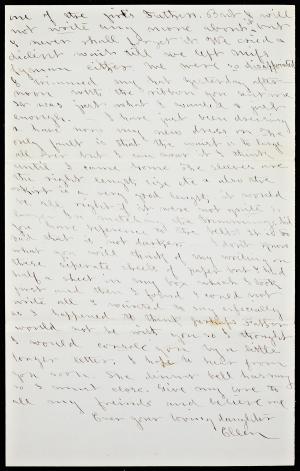 one of the girls Fathers. But I will
not write any more about it but
I never shall forget it. We cried a
till we left Miss
Lyman either. We were so disappointed
I trimmed my hat yesterday after
noon with the ribbon you sent me
It was just what I wanted & just
enough. I have just been dressing
& have now my new dress on. The
only fault is that the waist is to large
all over but I can wear it I think
until I come home. The sleeves are
the right length size etc & also the
skirt is a very good length, it would
be all right if it were not quite so
long
you have reference to the belt? It is so
sad that it is not darker. I don't know
what you will think of my writing on
these separate sheets of paper but I had
half a sheet in my box which I took
first and then I found I could not
write all I wanted to say especially
as I happened to think perhaps Father
would not be with you so I thought
I would console you by a little
longer letter. I hope to hear from
you soon. The dinner bell has rung
so I must close. Give my love to
all my friends and believe me
Ever your loving daughter
Ellen